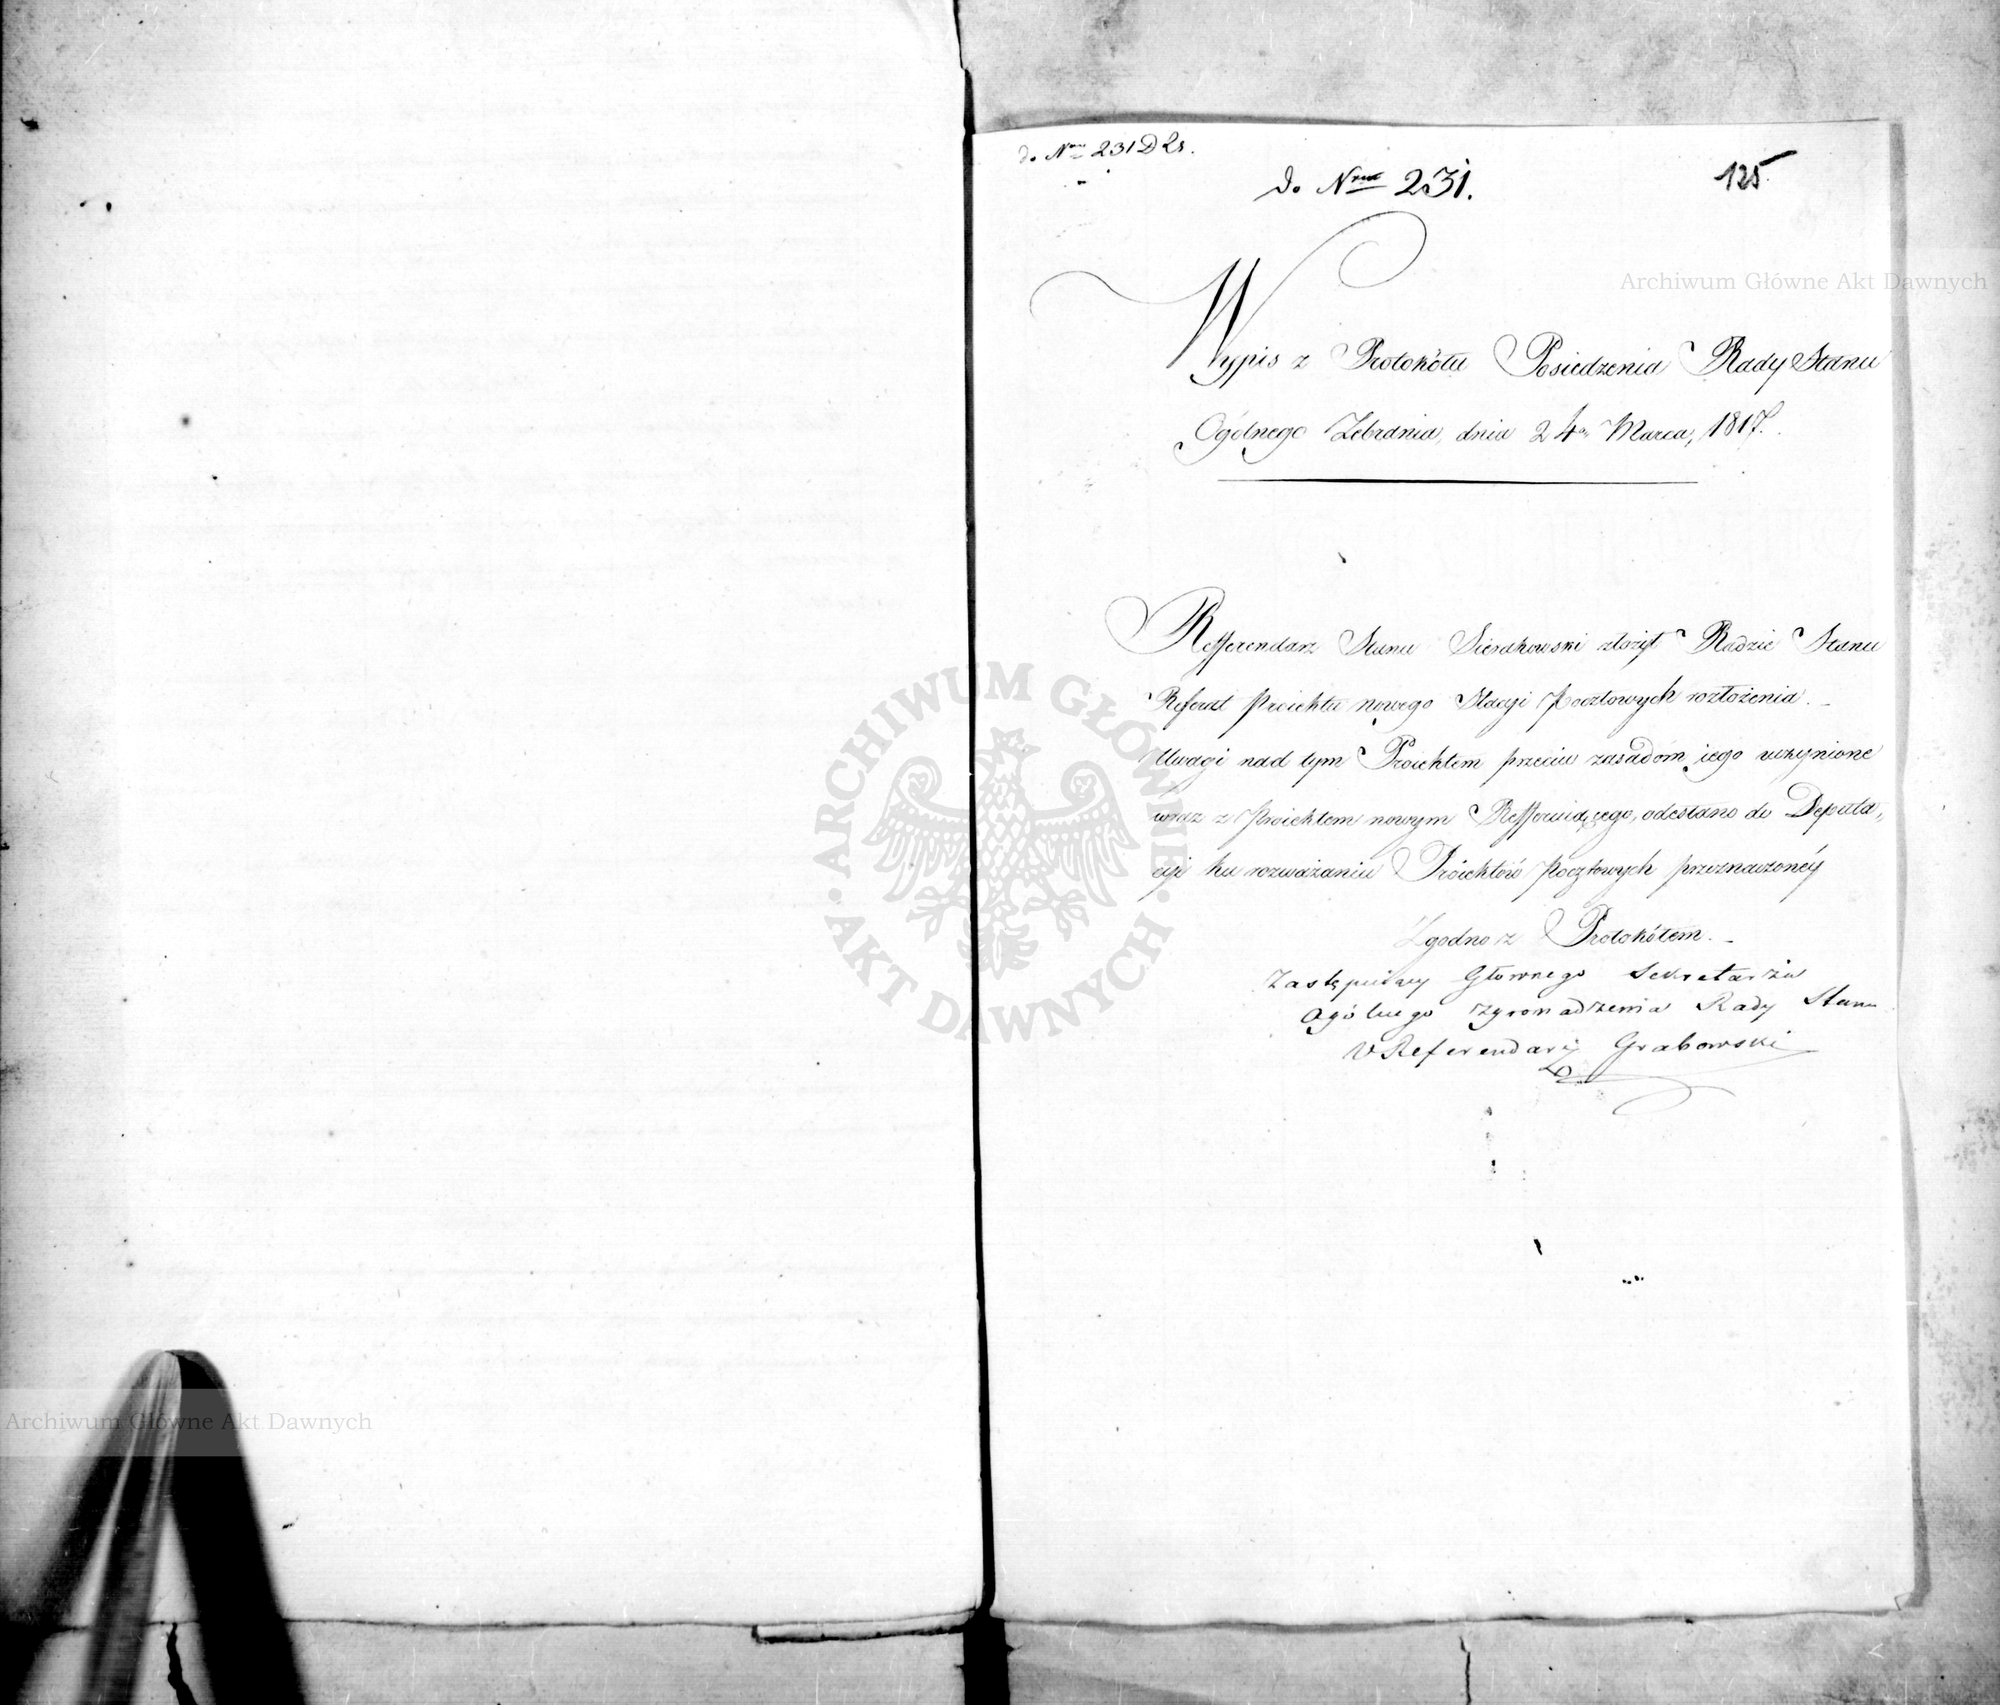 do Nru 231 D 2s.
do Nru 231.
125.
Wypis z Protokółu Posiedzenia Rady Stanu
Ogólnego Zebrania, dnia 24o Marca, 1817.
Refferendarz Stanu Sierakowski złożył Radzie Stanu
Referat Proiektu nowego Stacyi Pocztowych rozłożenia. –
Uwagi nad tym Proiektem przeciw zasadom iego uczynione
wraz z Proiektem nowym Refferuiącego, odesłano do Deputa,
cyi ku rozważaniu Próiektów Pocztowych przeznaczonéy
Zgodno z Protokółem. –
Zastępuiący Głownego Sekretarza
Ogólnego Zgromadzenia Rady Stanu
Referendarz Grabowski
Archiwum Główne Akt Dawnych
ARCHIWUM GŁÓWNE · AKT DAWNYCH ·
Archiwum Główne Akt Dawnych